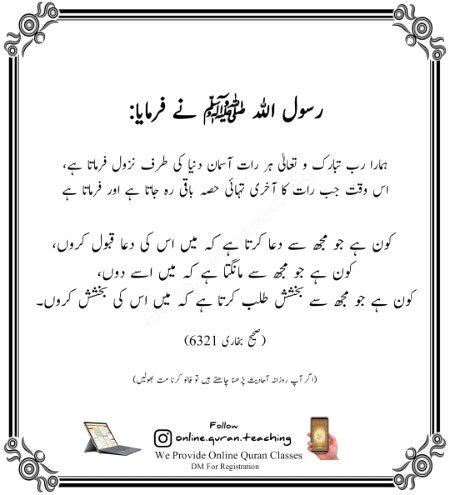 رسول اللہ ﷺ نے فرمایا:
ہمارا رب تبارک و تعالیٰ ہر رات آسمان دنیا کی طرف نزول فرماتا ہے،
اس وقت جب رات کا آخری تہائی حصہ باقی رہ جاتا ہے اور فرماتا ہے
کون ہے جو مجھ سے دعا کرتا ہے کہ میں اس کی دعا قبول کروں،
کون ہے جو مجھ سے مانگتا ہے کہ میں اسے دوں،
کون ہے جو مجھ سے بخشش طلب کرتا ہے کہ میں اس کی بخشش کروں۔
(صحیح بخاری 6321)
(اگر آپ روزانہ آحادیث پڑھنا چاہتے ہیں تو فالو کرنا مت بھولیں)
Follow
online.quran.teaching
We Provide Online Quran Classes
DM For Registration